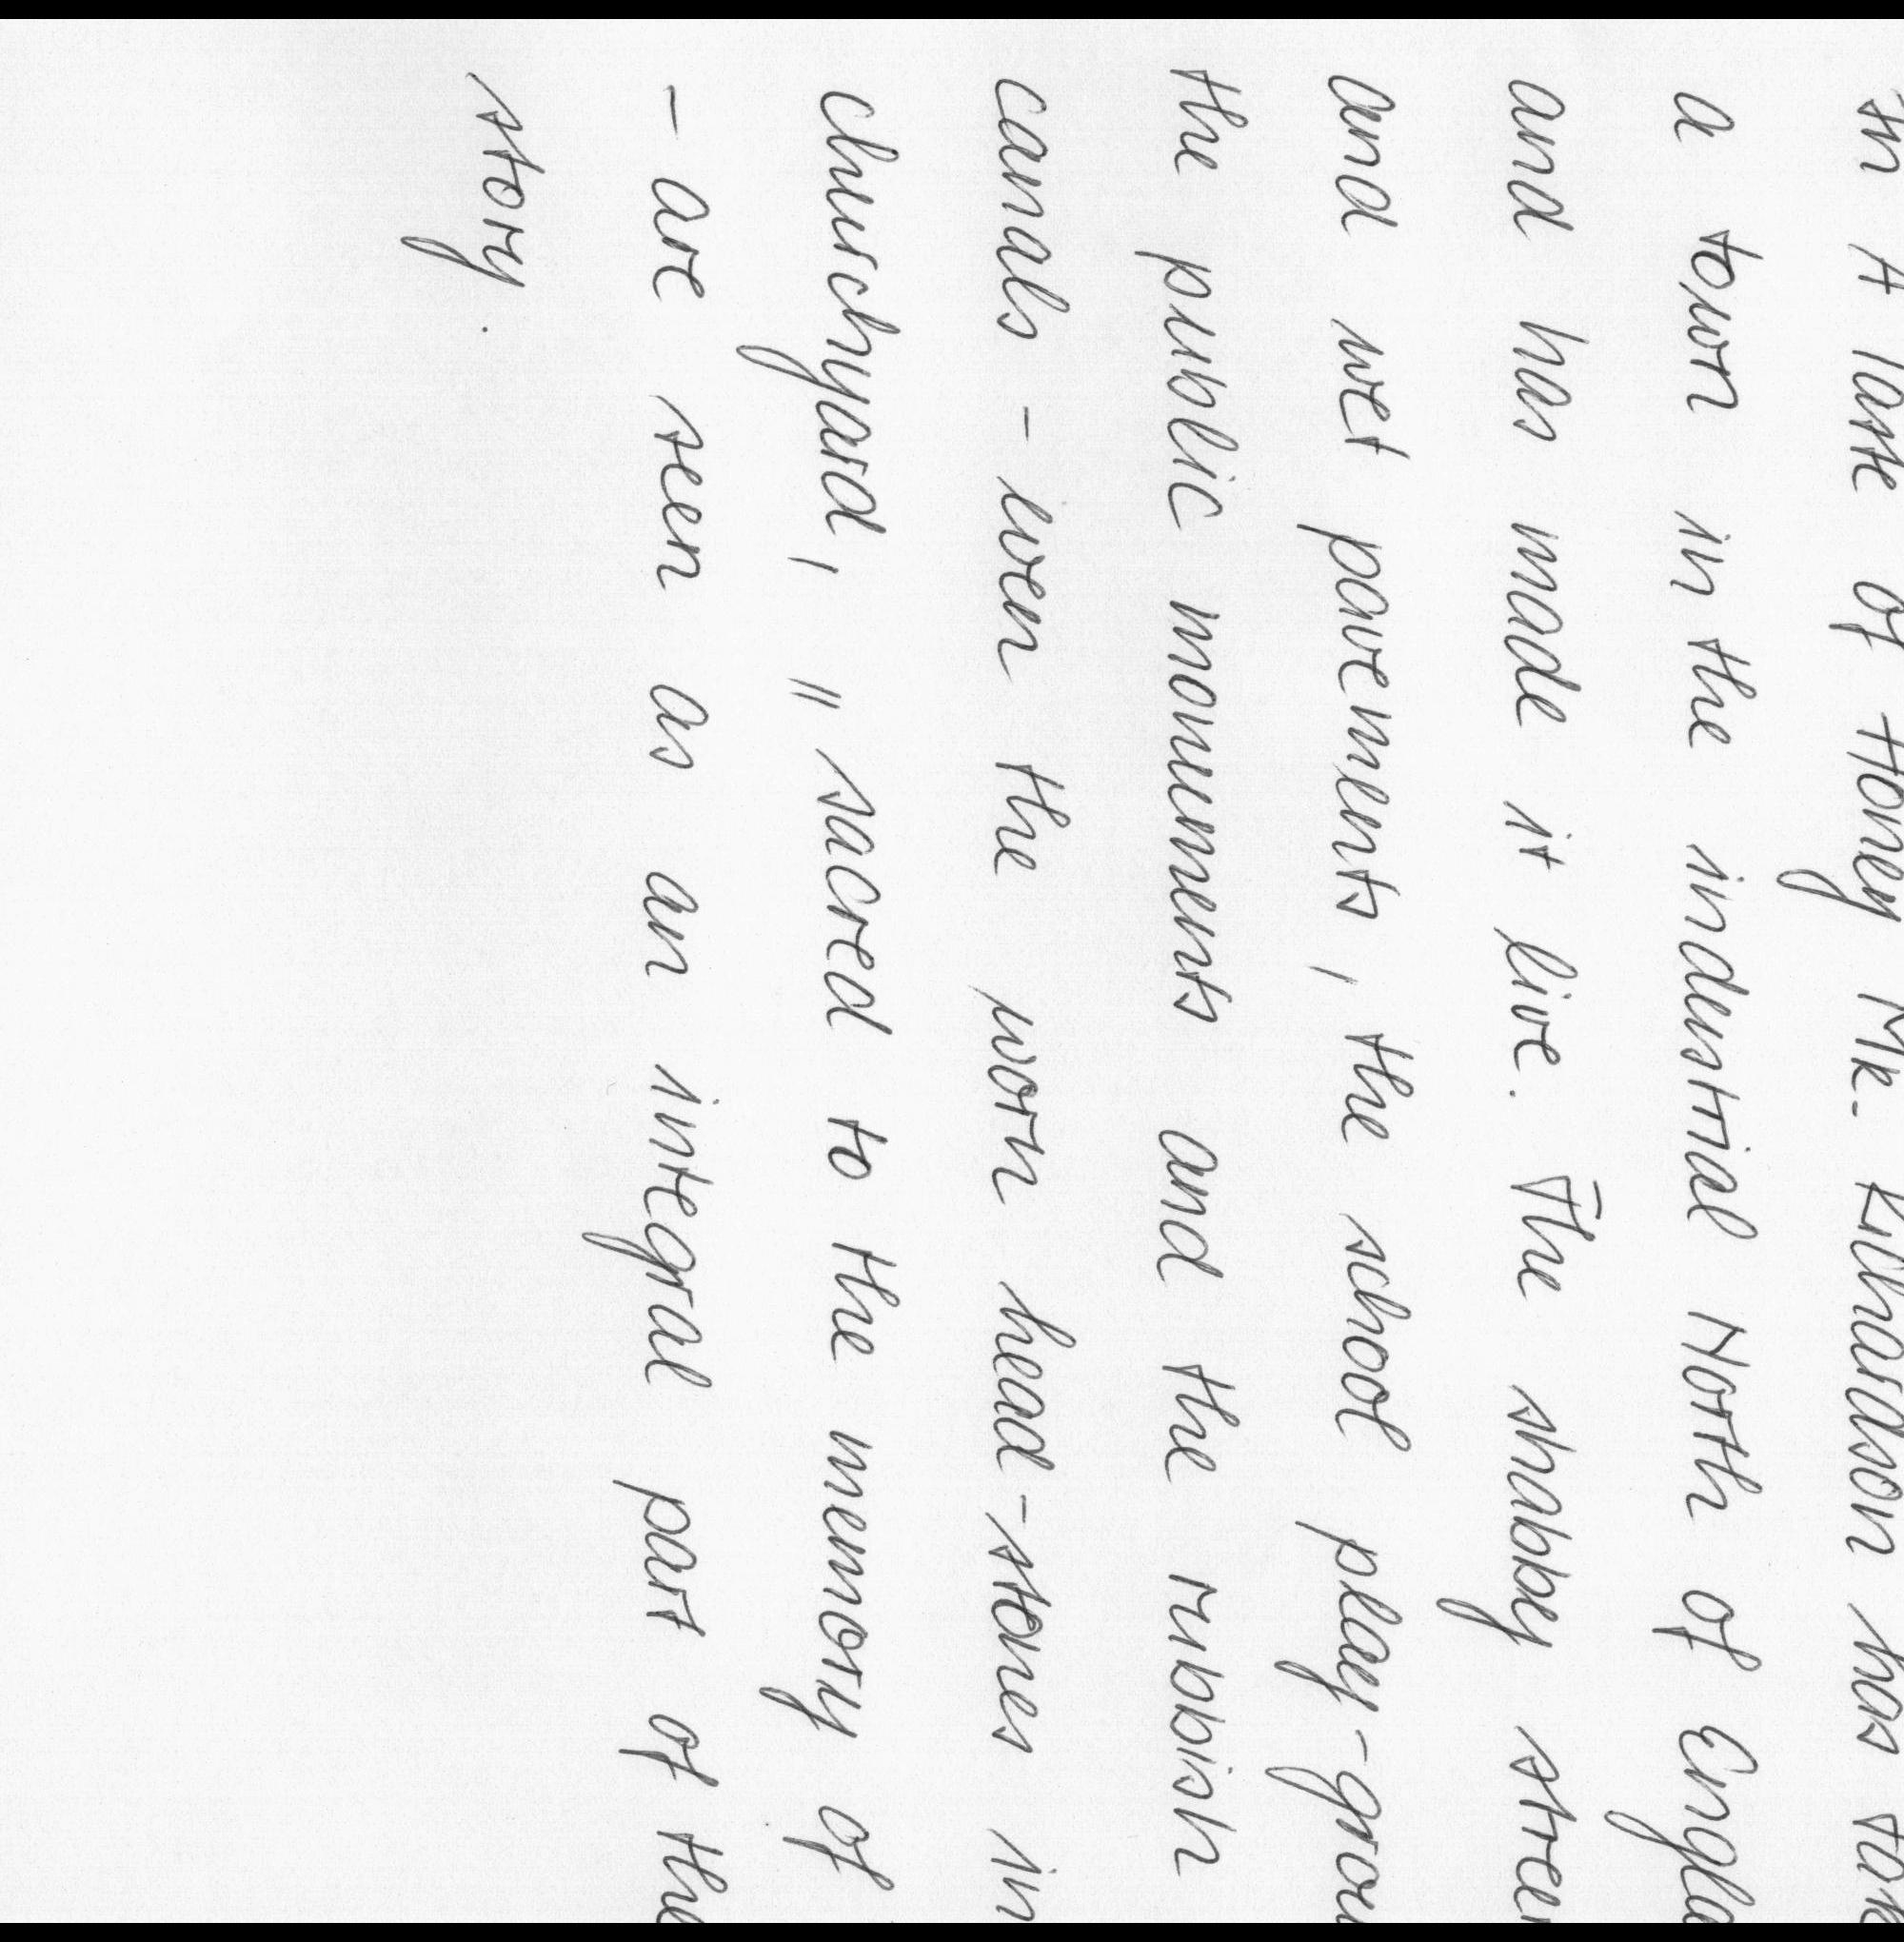 In A Taste of Honey Mr. Richardson has
a town in the industrial North of
and has made it live. The shabby
and wet pavements, the school
the public monuments and the rubbish
canals - even the worn head-stones in
churchyard, "sacred to the memory of
- are seen as an integral part of the
story.